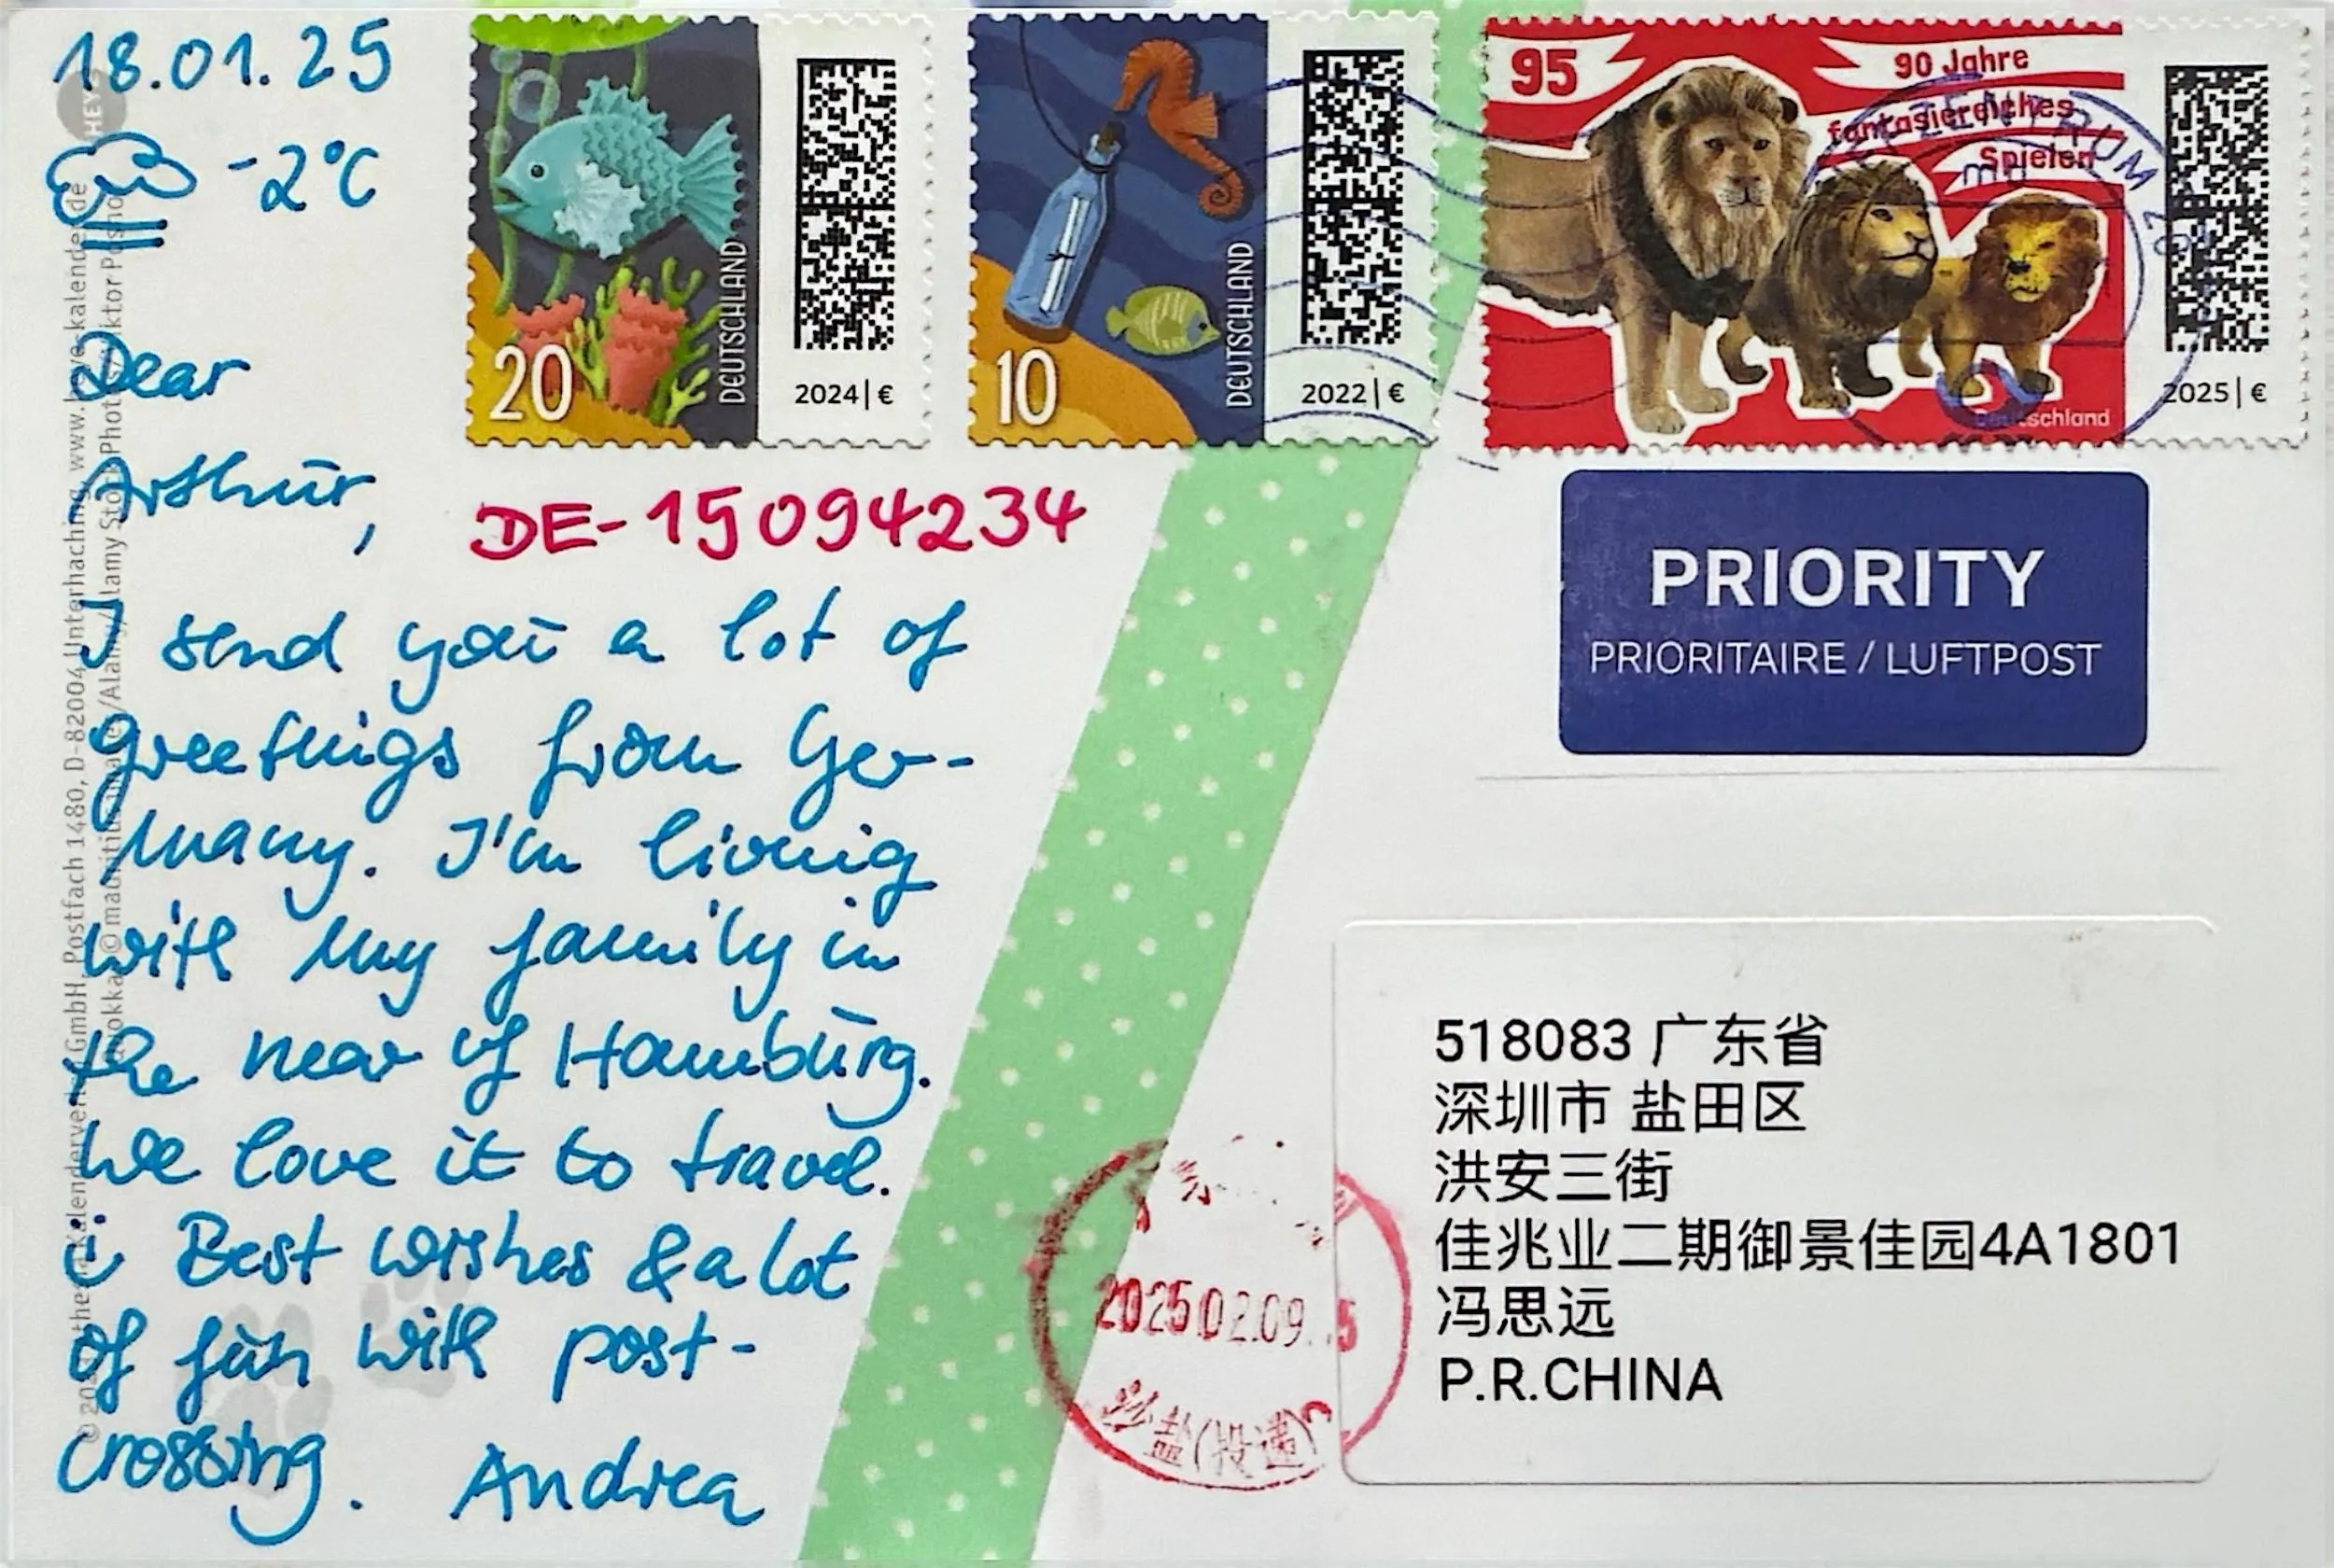 18.01.25
-2°C
Dear
Arthur,
DE-15094234
I send you a lot of
greetings from Ger-
many. I'm living
with my family in
the near of Hamburg.
We love it to travel.
Best wishes & a lot
of fun with post-
crossing. Andrea
20
DEUTSCHLAND
2024 | €
10
DEUTSCHLAND
2022 | €
95
90 Jahre
fantasiereiches
Spielen
Deutschland
2025 | €
PRIORITY
PRIORITAIRE / LUFTPOST
518083 广东省
深圳市 盐田区
洪安三街
佳兆业二期御景佳园4A1801
冯思远
P.R.CHINA
2025.02.09
(投递)
HEYE
Postfach 1480, D-82004 Unterhaching, www.heye-kalender.de